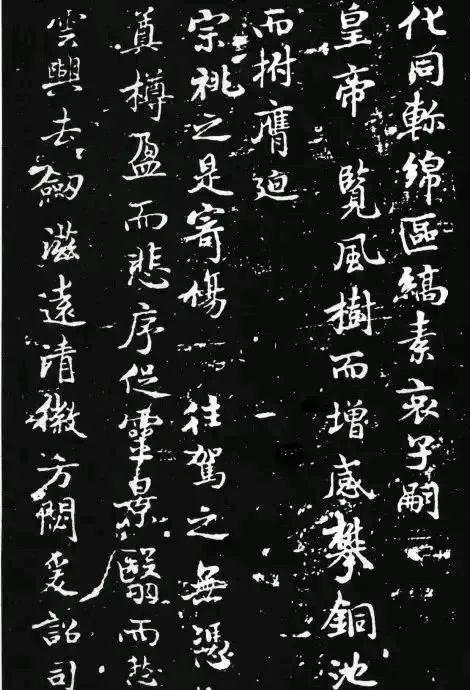 化同軫綿區縞素哀子嗣
皇帝覽風樹而增感攀銅池
而拊膺迫
宗祧之是寄傷往駕之無憑
奠樽盈而悲序促靈景翳而愁
雲興去劒滋遠清徽方閟爰詔司